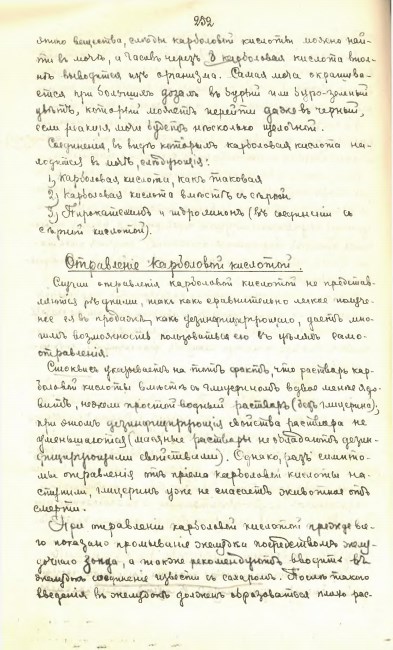 232
этого вещества, следы карболовой кислоты можно най-
ти въ мочѣ, а часовъ черезъ 8 карболовая кислота впол-
нѣ выводится изъ организма. Самая моча окрашива-
ется при большихъ дозахъ въ бурый или буро-зеленый
цвѣтъ, который можетъ перейти даже въ черный,
если реакція мочи будетъ нѣсколько щелочной.
Соединенія, въ видѣ которыхъ карболовая кислота на-
ходится въ мочѣ, слѣдующія:
1) карболовая кислота, какъ таковая
2) карболовая кислота вмѣстѣ съ сѣрной
3) Пирокатехинъ и гидрохинонъ (въ соединеніи съ
сѣрной кислотой).
Отравленіе карболовой кислотой.
Случаи отравленія карболовой кислотой не представ-
ляются рѣдкими, такъ какъ сравнительно легкое получе-
ніе ея въ продажѣ, какъ дезинфицирующаго, даетъ мно-
гимъ возможность пользоваться ею въ цѣляхъ само-
отравленія.
указываетъ на тотъ фактъ, что растворъ кар-
боловой кислоты вмѣстѣ съ глицериномъ вдвое менѣе ядо-
витъ, нежели простой водный растворъ (безъ глицерина),
при этомъ дезинфицирующія свойства раствора не
уменьшаются (масляные растворы не обладаютъ дезин-
фицирующими свойствами). Однако, разъ симпто-
мы отравленія отъ пріема карболовой кислоты на-
ступили, глицеринъ уже не спасаетъ животное отъ
смерти.
При отравленіи карболовой кислотой прежде все-
го показано промываніе желудка посредствомъ желу-
дочнаго зонда, а также рекомендуютъ вводить въ
желудокъ соединеніе извести съ сахаромъ. Послѣ такого
введенія въ желудкѣ долженъ образоваться плохо рас-